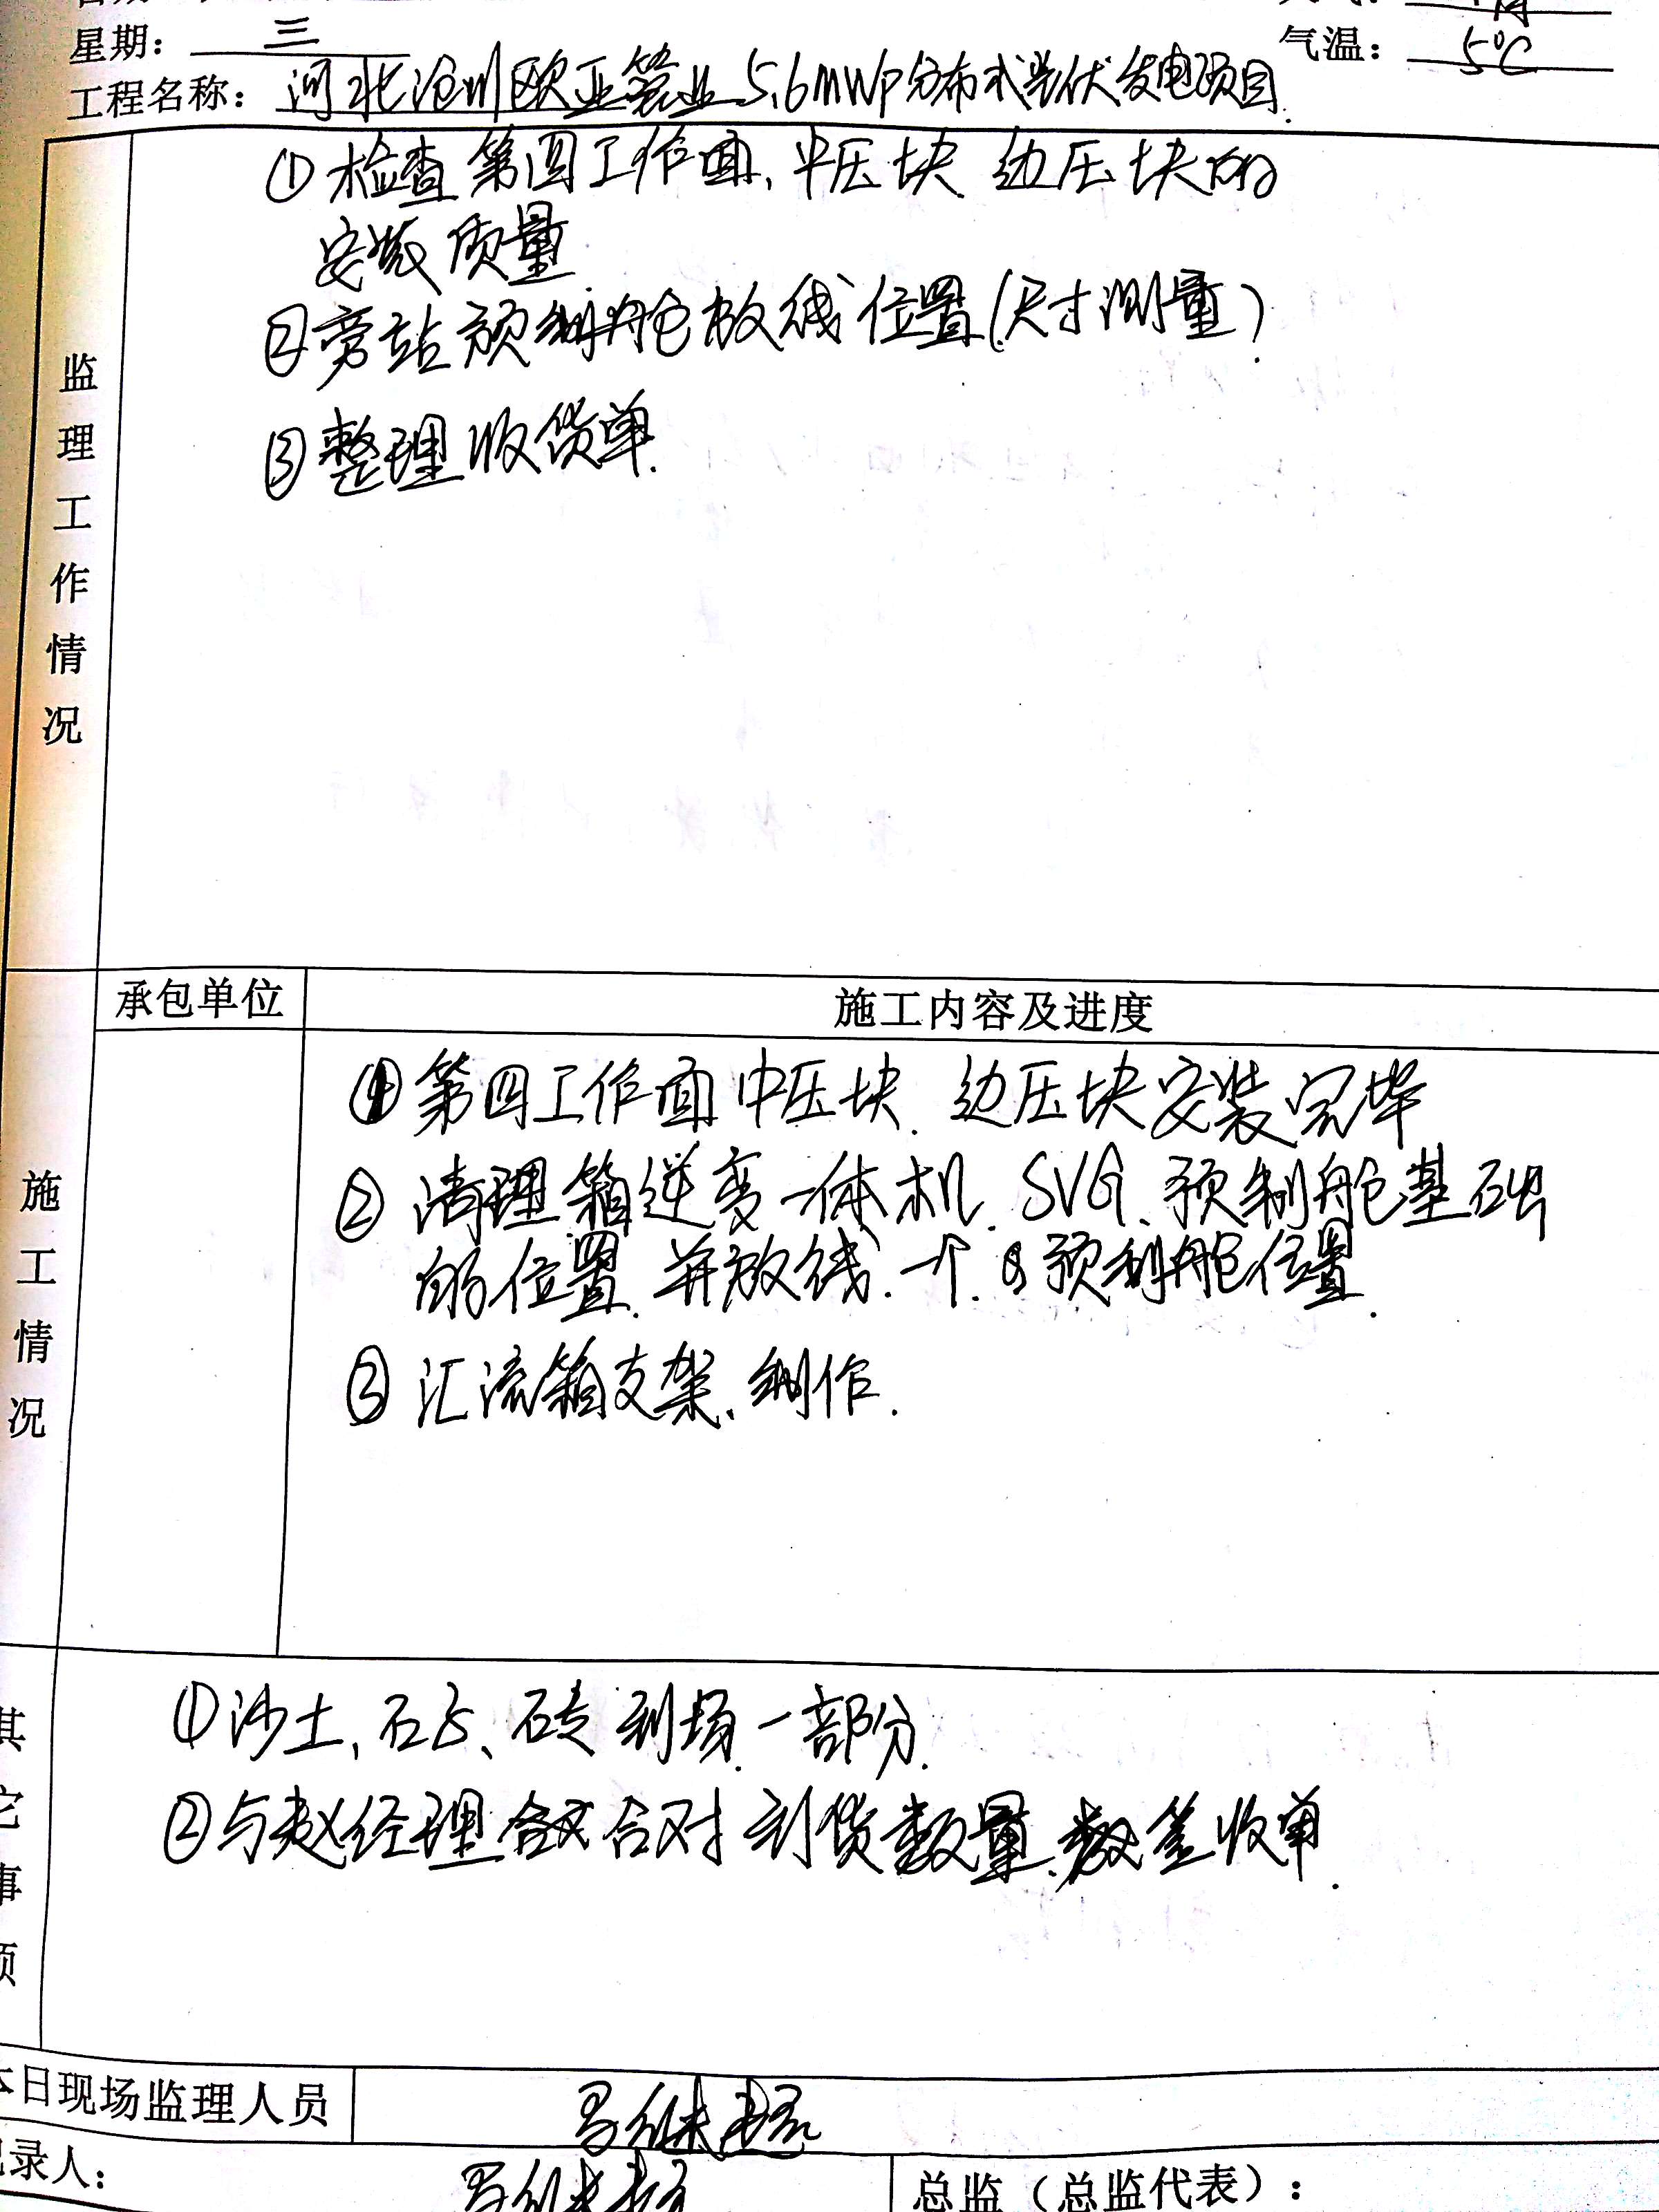 星期： 三
气温： 5℃
工程名称： 河北沧州欧亚管业5.6MWp分布式光伏发电项目.
监理工作情况
①检查第四工作面、中压块、边压块的
安装质量
②旁站预制舱放线位置(尺寸测量)
③整理收货单.
承包单位 施工内容及进度
施工情况
①第四工作面中压块、边压块安装完毕
②清理箱逆变一体机、SVG、预制舱基础
的位置、并放线、一个 预制舱位置.
③汇流箱支架、制作.
其它事项
①沙土、石子、砖到场一部分.
②与赵经理 对到货数量、 签收单.
本日现场监理人员
记录人：
总监（总监代表）：